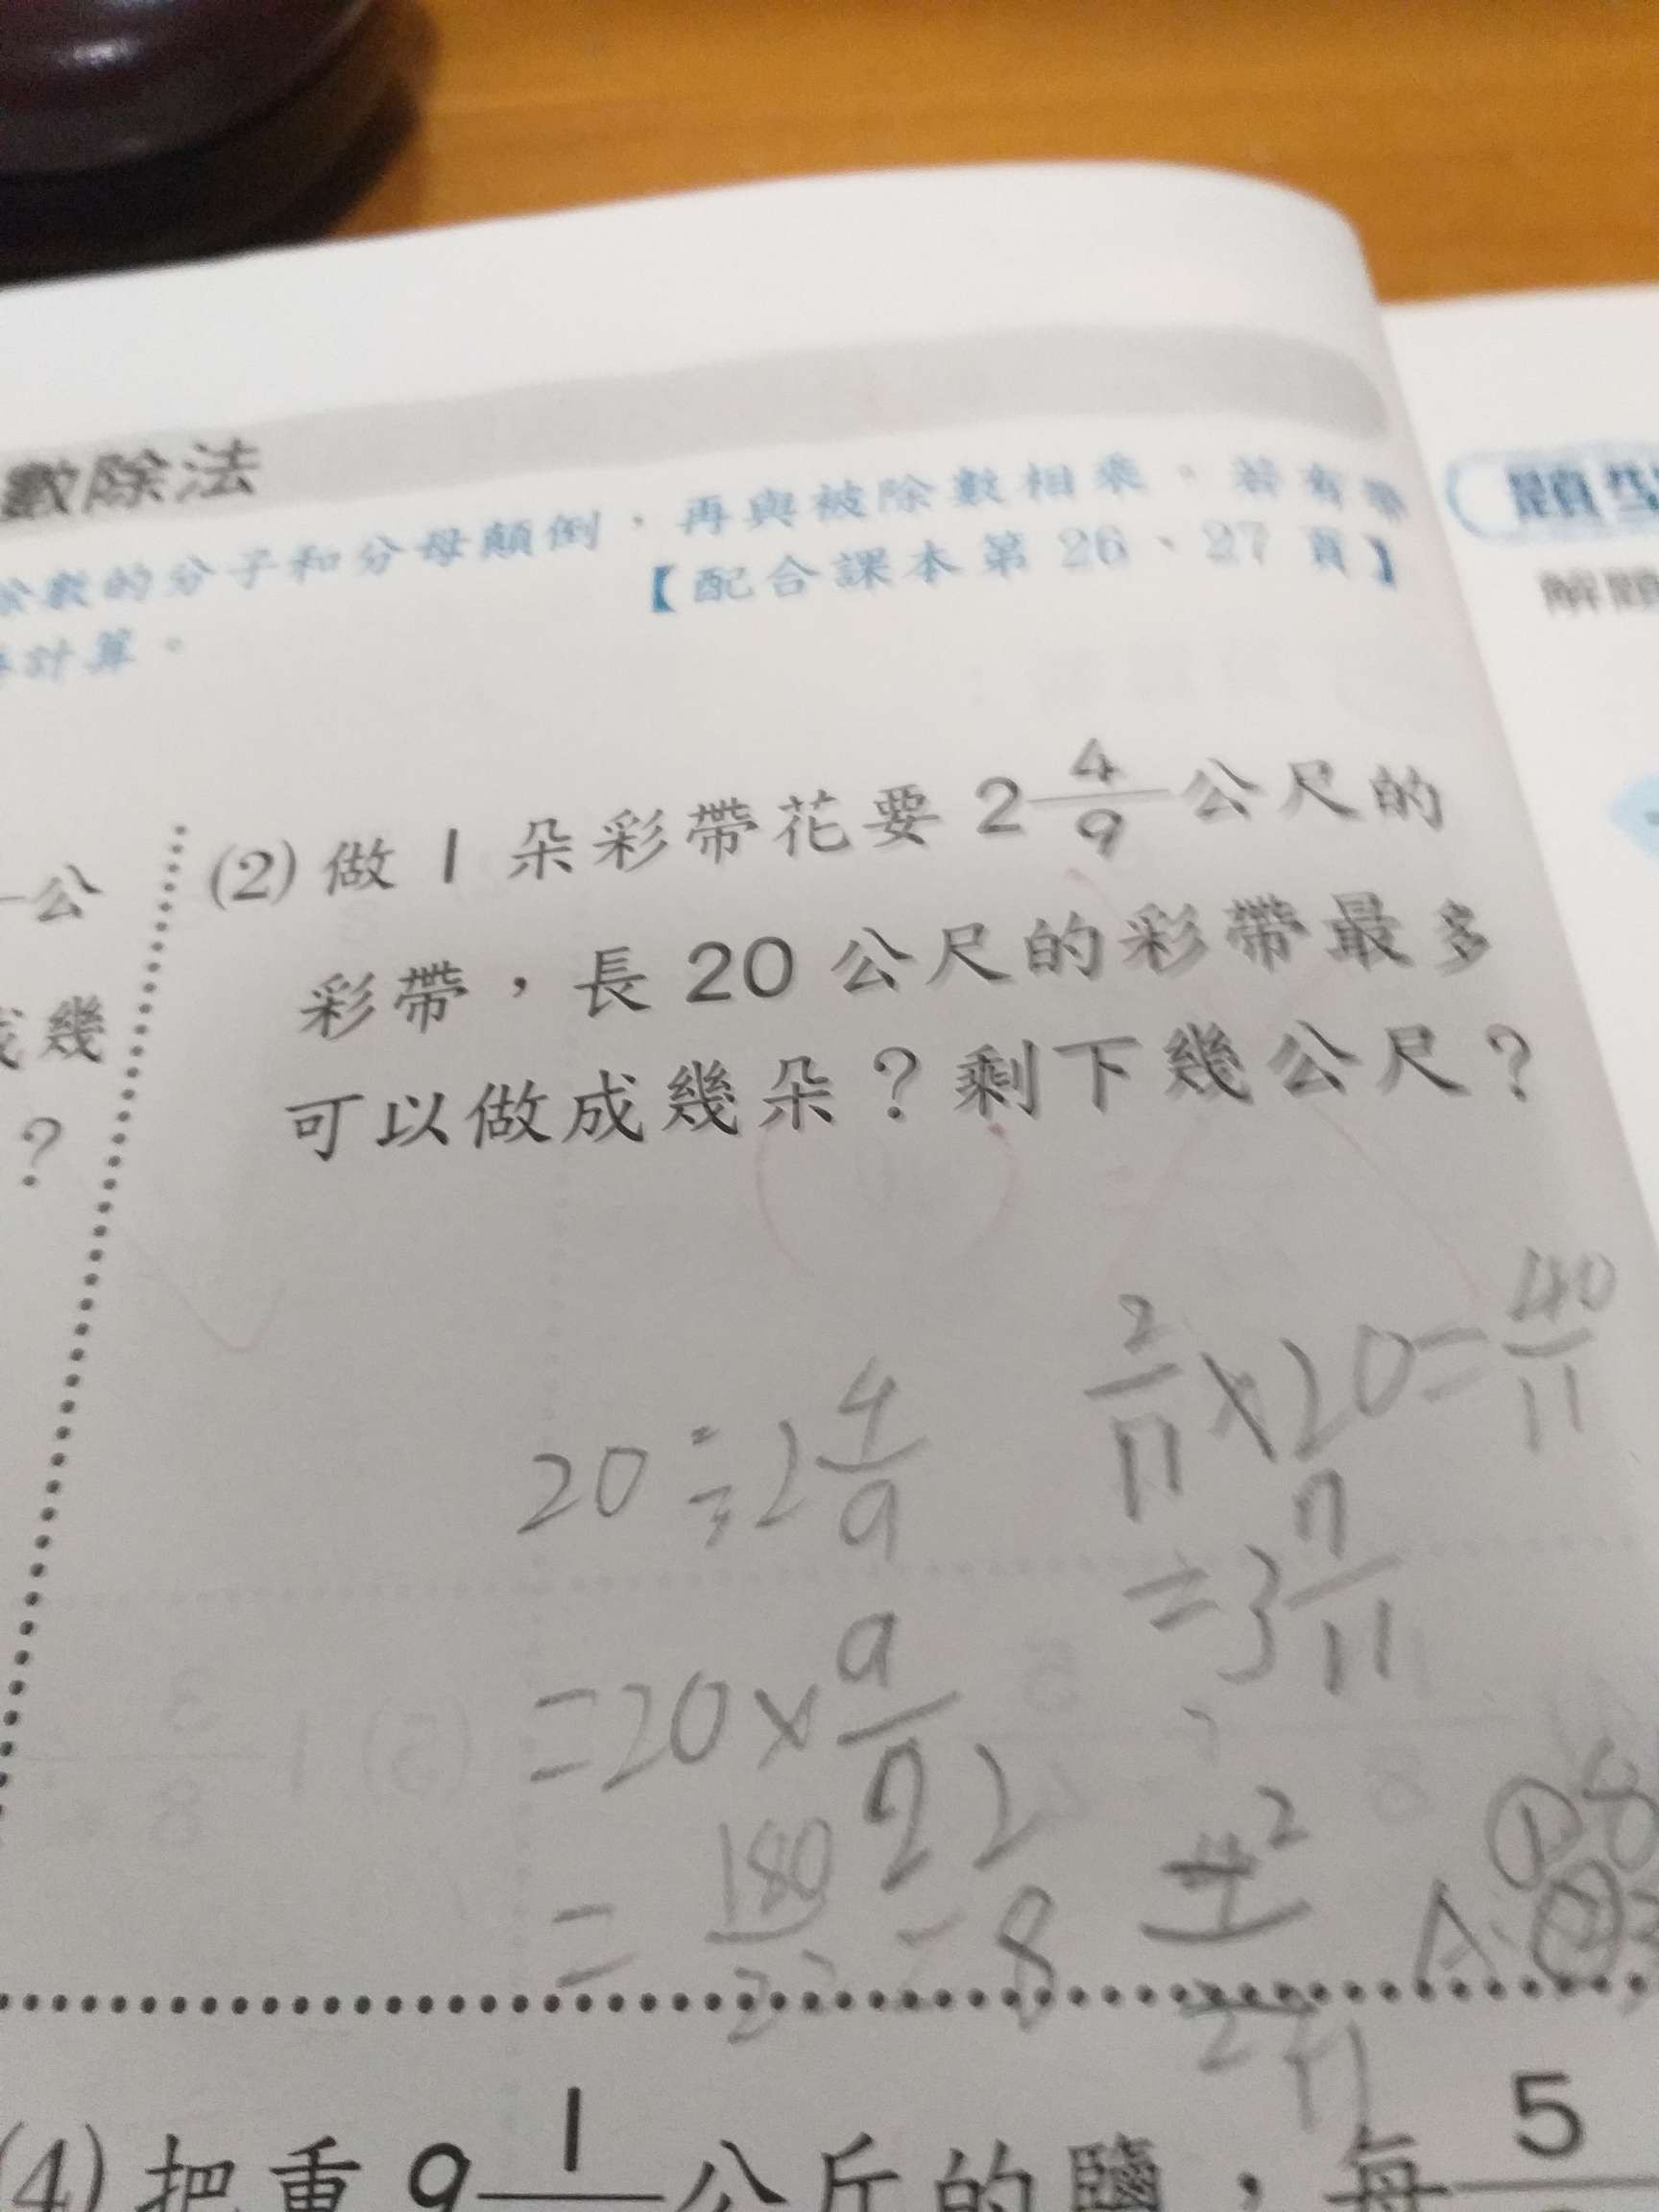 數除法
除數的分子和分母顛倒，再與被除數相乘。若有帶
計算。
【配合課本第 26、27 頁】
題型
解題
公
幾
？
(2) 做 1 朵彩帶花要 2 4/9 公尺的
彩帶，長 20 公尺的彩帶最多
可以做成幾朵？剩下幾公尺？
20 ÷ 2 4/9
= 20 × 9/22
= 180/22 = 8 4/22
2/11
2/11 × 20 = 40/11
= 3 7/11
A: ① 8
② 3
(4) 把重 9 1 公斤的鹽，每 5